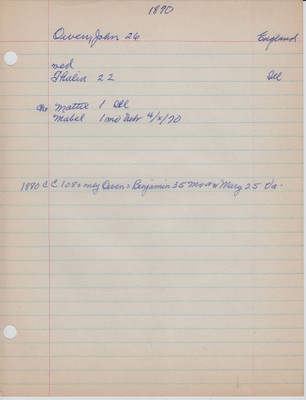 1870
Owen, John 26 England
wed
Thalia 22 Ill
ch Mattie 1 Ill
Mabel 1mo Nebr 4/x/70
1880 C C 108 Owen = Benjamin 35 Mo w Mary 25 Va.